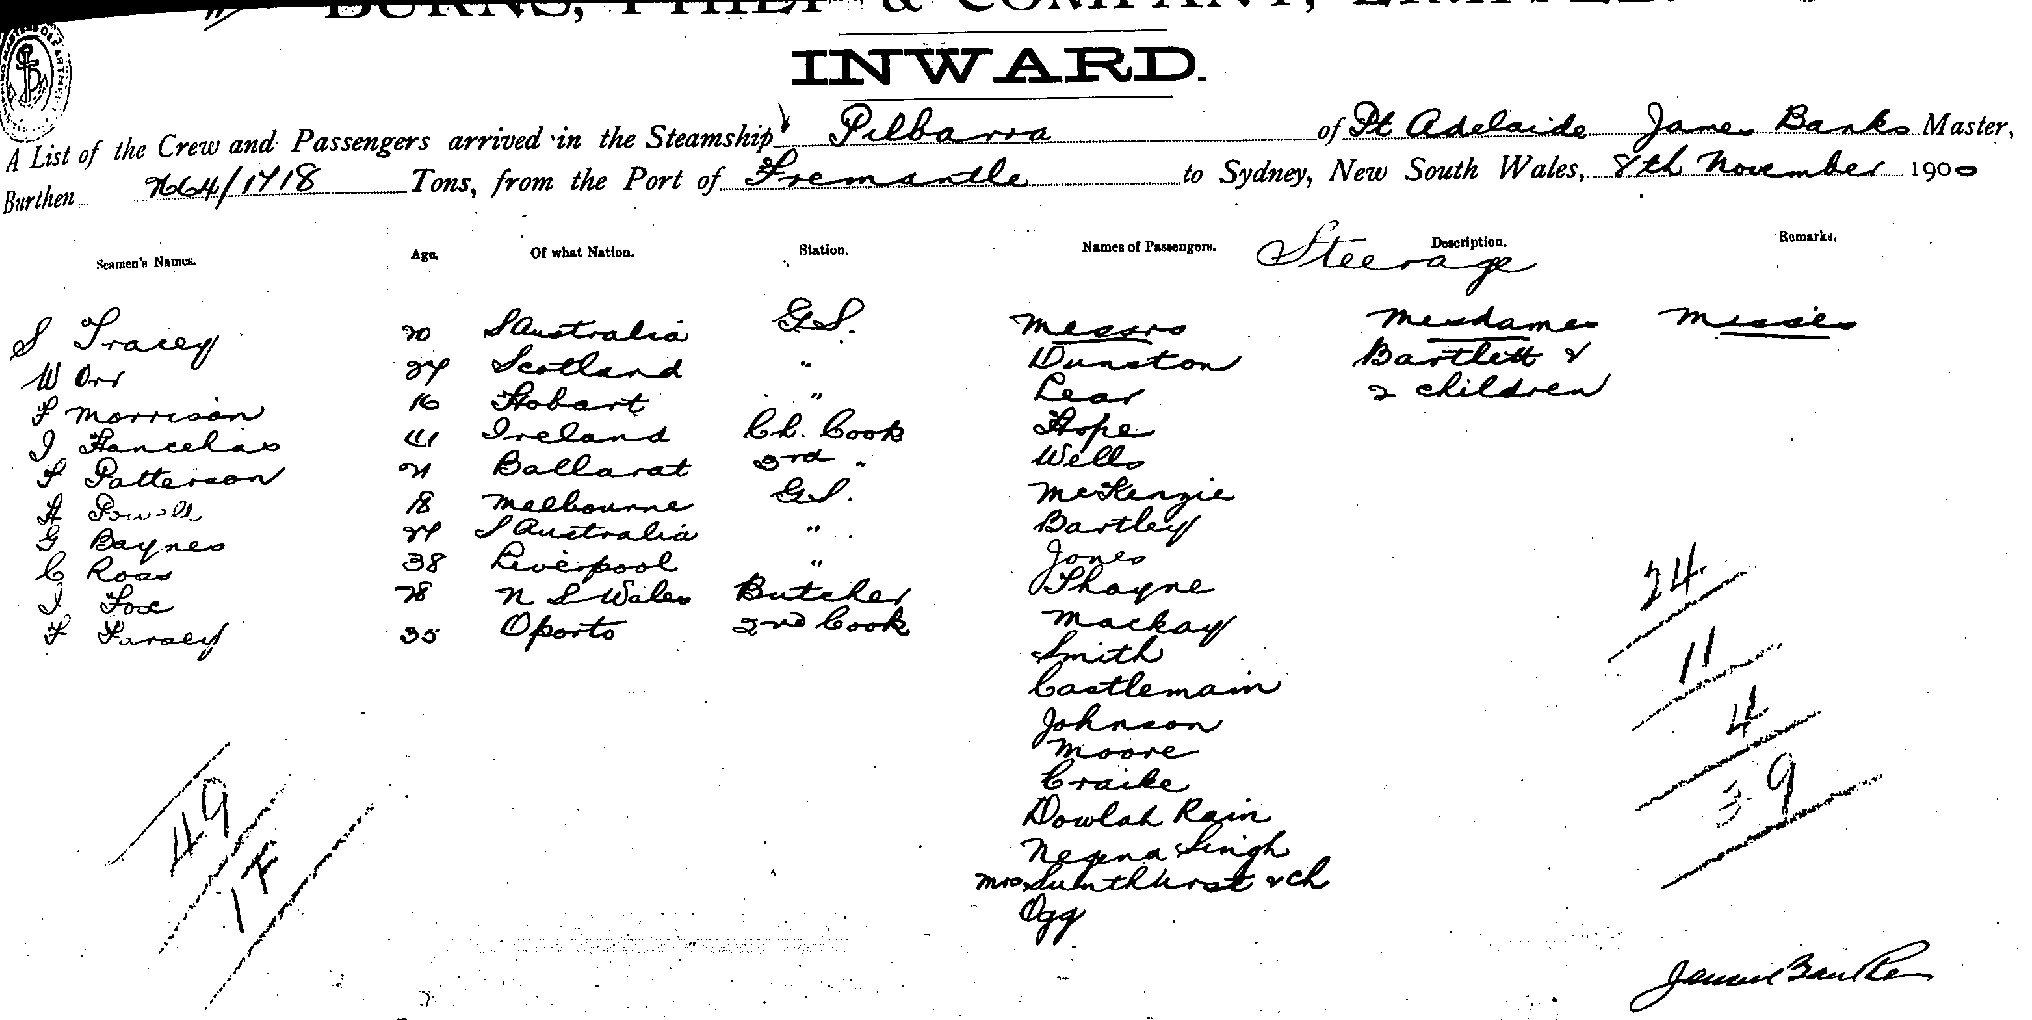 BURNS, PHILP & COMPANY, LIMITED.
INWARD.
A List of the Crew and Passengers arrived in the Steamship Pilbarra of Pt Adelaide James Banks Master,
Burthen 1718 Tons, from the Port of Fremantle to Sydney, New South Wales, 8th November 1900
Seamen's Names. Age. Of what Nation. Station. Names of Passengers. Steerage Description. Remarks.
S Tracey 20 S Australia G.S. Messrs Mesdames Misses
W Orr 24 Scotland " Dunston Bartlett &
F Morrison 16 Hobart " Lear 2 children
J 41 Ireland Ch. Cook Hope
F Patterson 21 Ballarat 3rd " Wells
H Powell 18 Melbourne G.S. McKenzie
G Baynes 24 S Australia " Bartley
C Ross 38 Liverpool " Jones
J Fox 28 N S Wales Butcher Thayne
F Farsey 35 Oporto 2nd Cook Mackay
Smith
Castlemain
Johnson
Moore
Craike
Dowlah Rain
Singh
Mrs & ch
Ogg
24
11
4
39
49
1F
James Banks